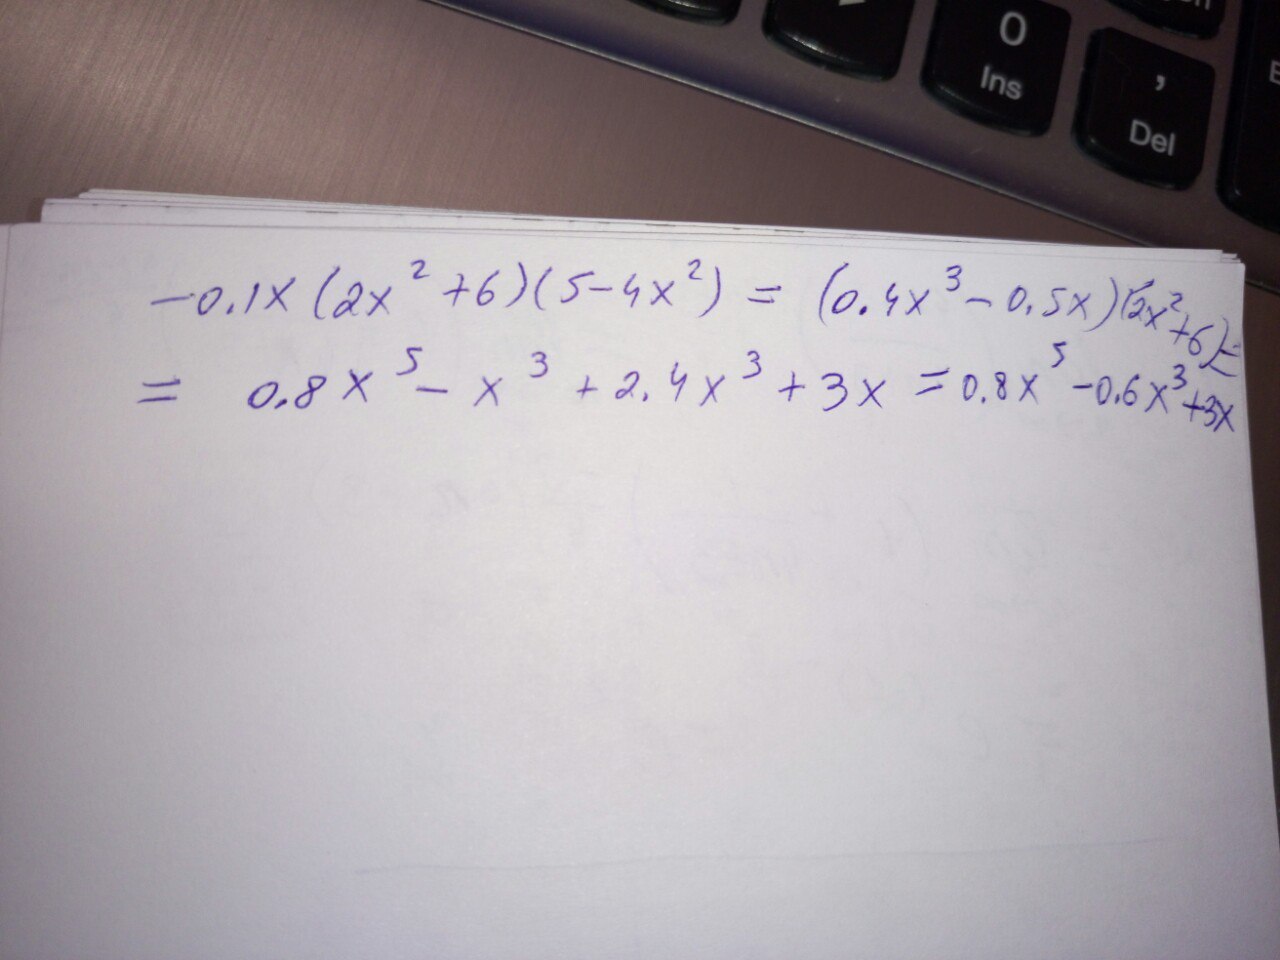 0
Ins
,
Del
-0.1x(2x²+6)(5-4x²) = (0.4x³-0.5x)(2x²+6)=
= 0.8x⁵-x³+2.4x³+3x = 0.8x⁵-0.6x³+3x